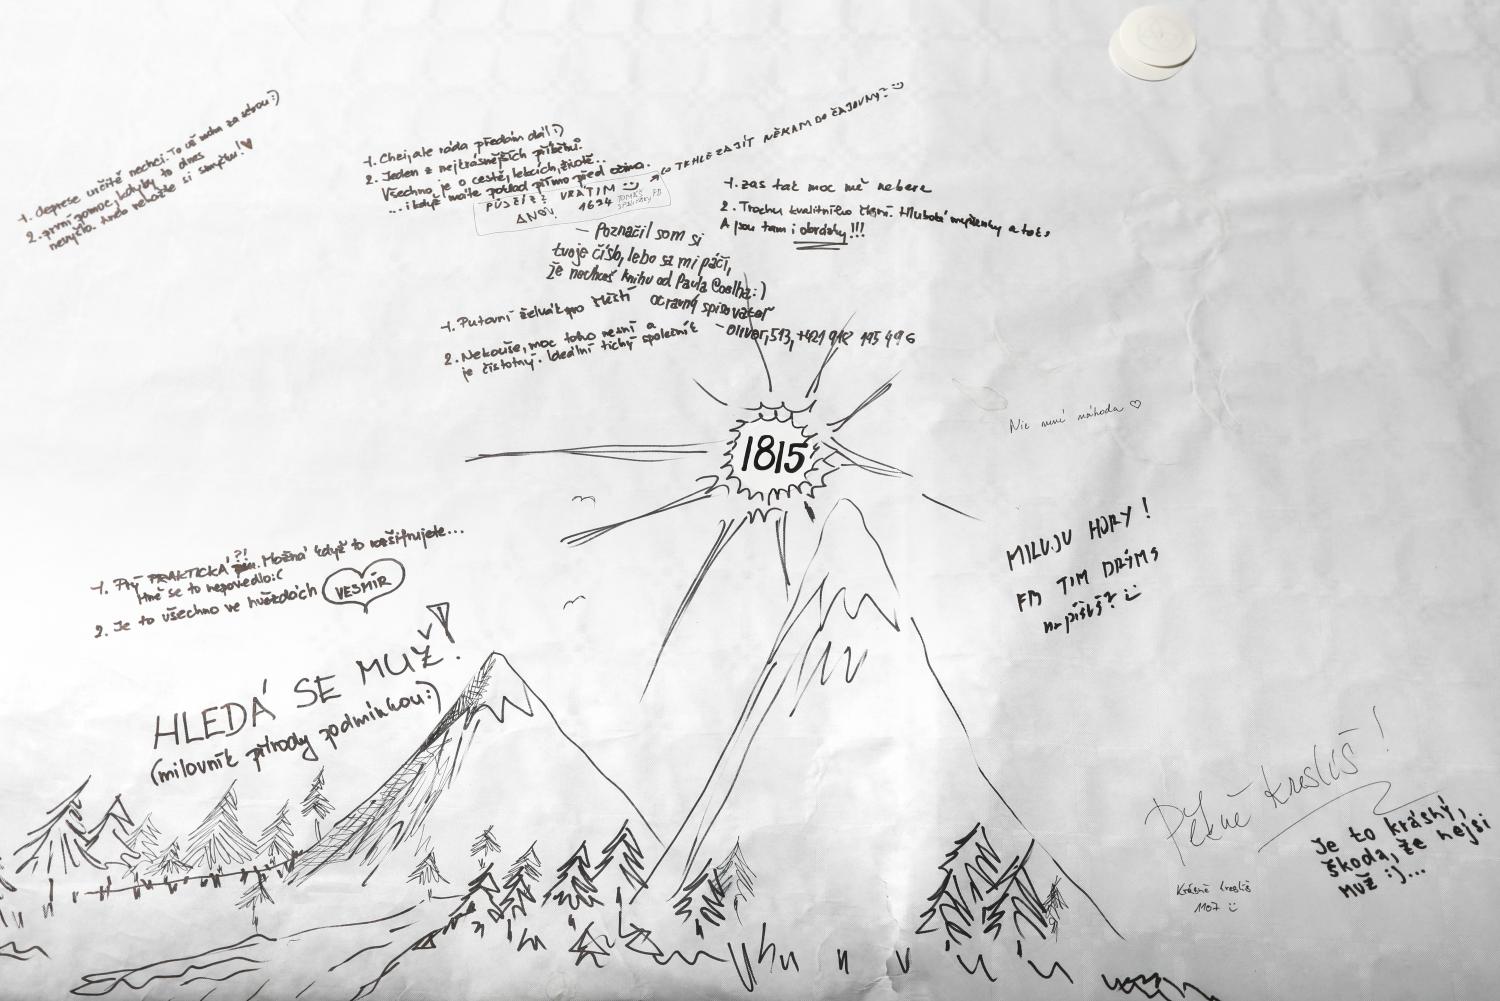 1. deprese určitě nechci. To už mám za sebou :)
2. první pomoc, kdyby to dnes
nevyšlo. Anebo nebože si smyčku! ♥
1. Chci, ale ráda předám dál :)
2. Jeden z nejkrásnějších příběhů.
Všechno je o cestě, lekcích, životě...
... i když máte poklad přímo před očima.
TAKHLE ZAJÍT NĚKAM DO ČAJOVNY?
PŮJČÍŠ? VRÁTIM
ÁNO!. 1694 TOMÁŠ FB
1. zas tak moc mě nebere
2. Trochu kvalitního čtení. Hluboké myšlenky a tak,
A jsou tam i obrázky!!!
– Poznačil som si
tvoje číslo, lebo sa mi páči,
že nechceš knihu od Paula Coelha :)
otravný spisovateľ
– Oliver, 513, +421 912 195 496
1. Putovní želvák pro štěstí
2. Nekouše, moc toho nesní a
je čistotný. Ideální tichý společník
1815
Nic není náhoda ♡
MILUJU HORY!
FB TIM DRÁMS
napíšeš?
1. Prý PRAKTICKÁ ?! Možná když to rozšifrujete...
Mně se to nepovedlo :(
2. Je to všechno ve hvězdách VESMÍR
HLEDÁ SE MUŽ!
(milovník přírody podmínkou :)
Pěkně kreslíš!
Je to krásný,
škoda, že nejsi
muž :)...
Krásně kreslíš
1107